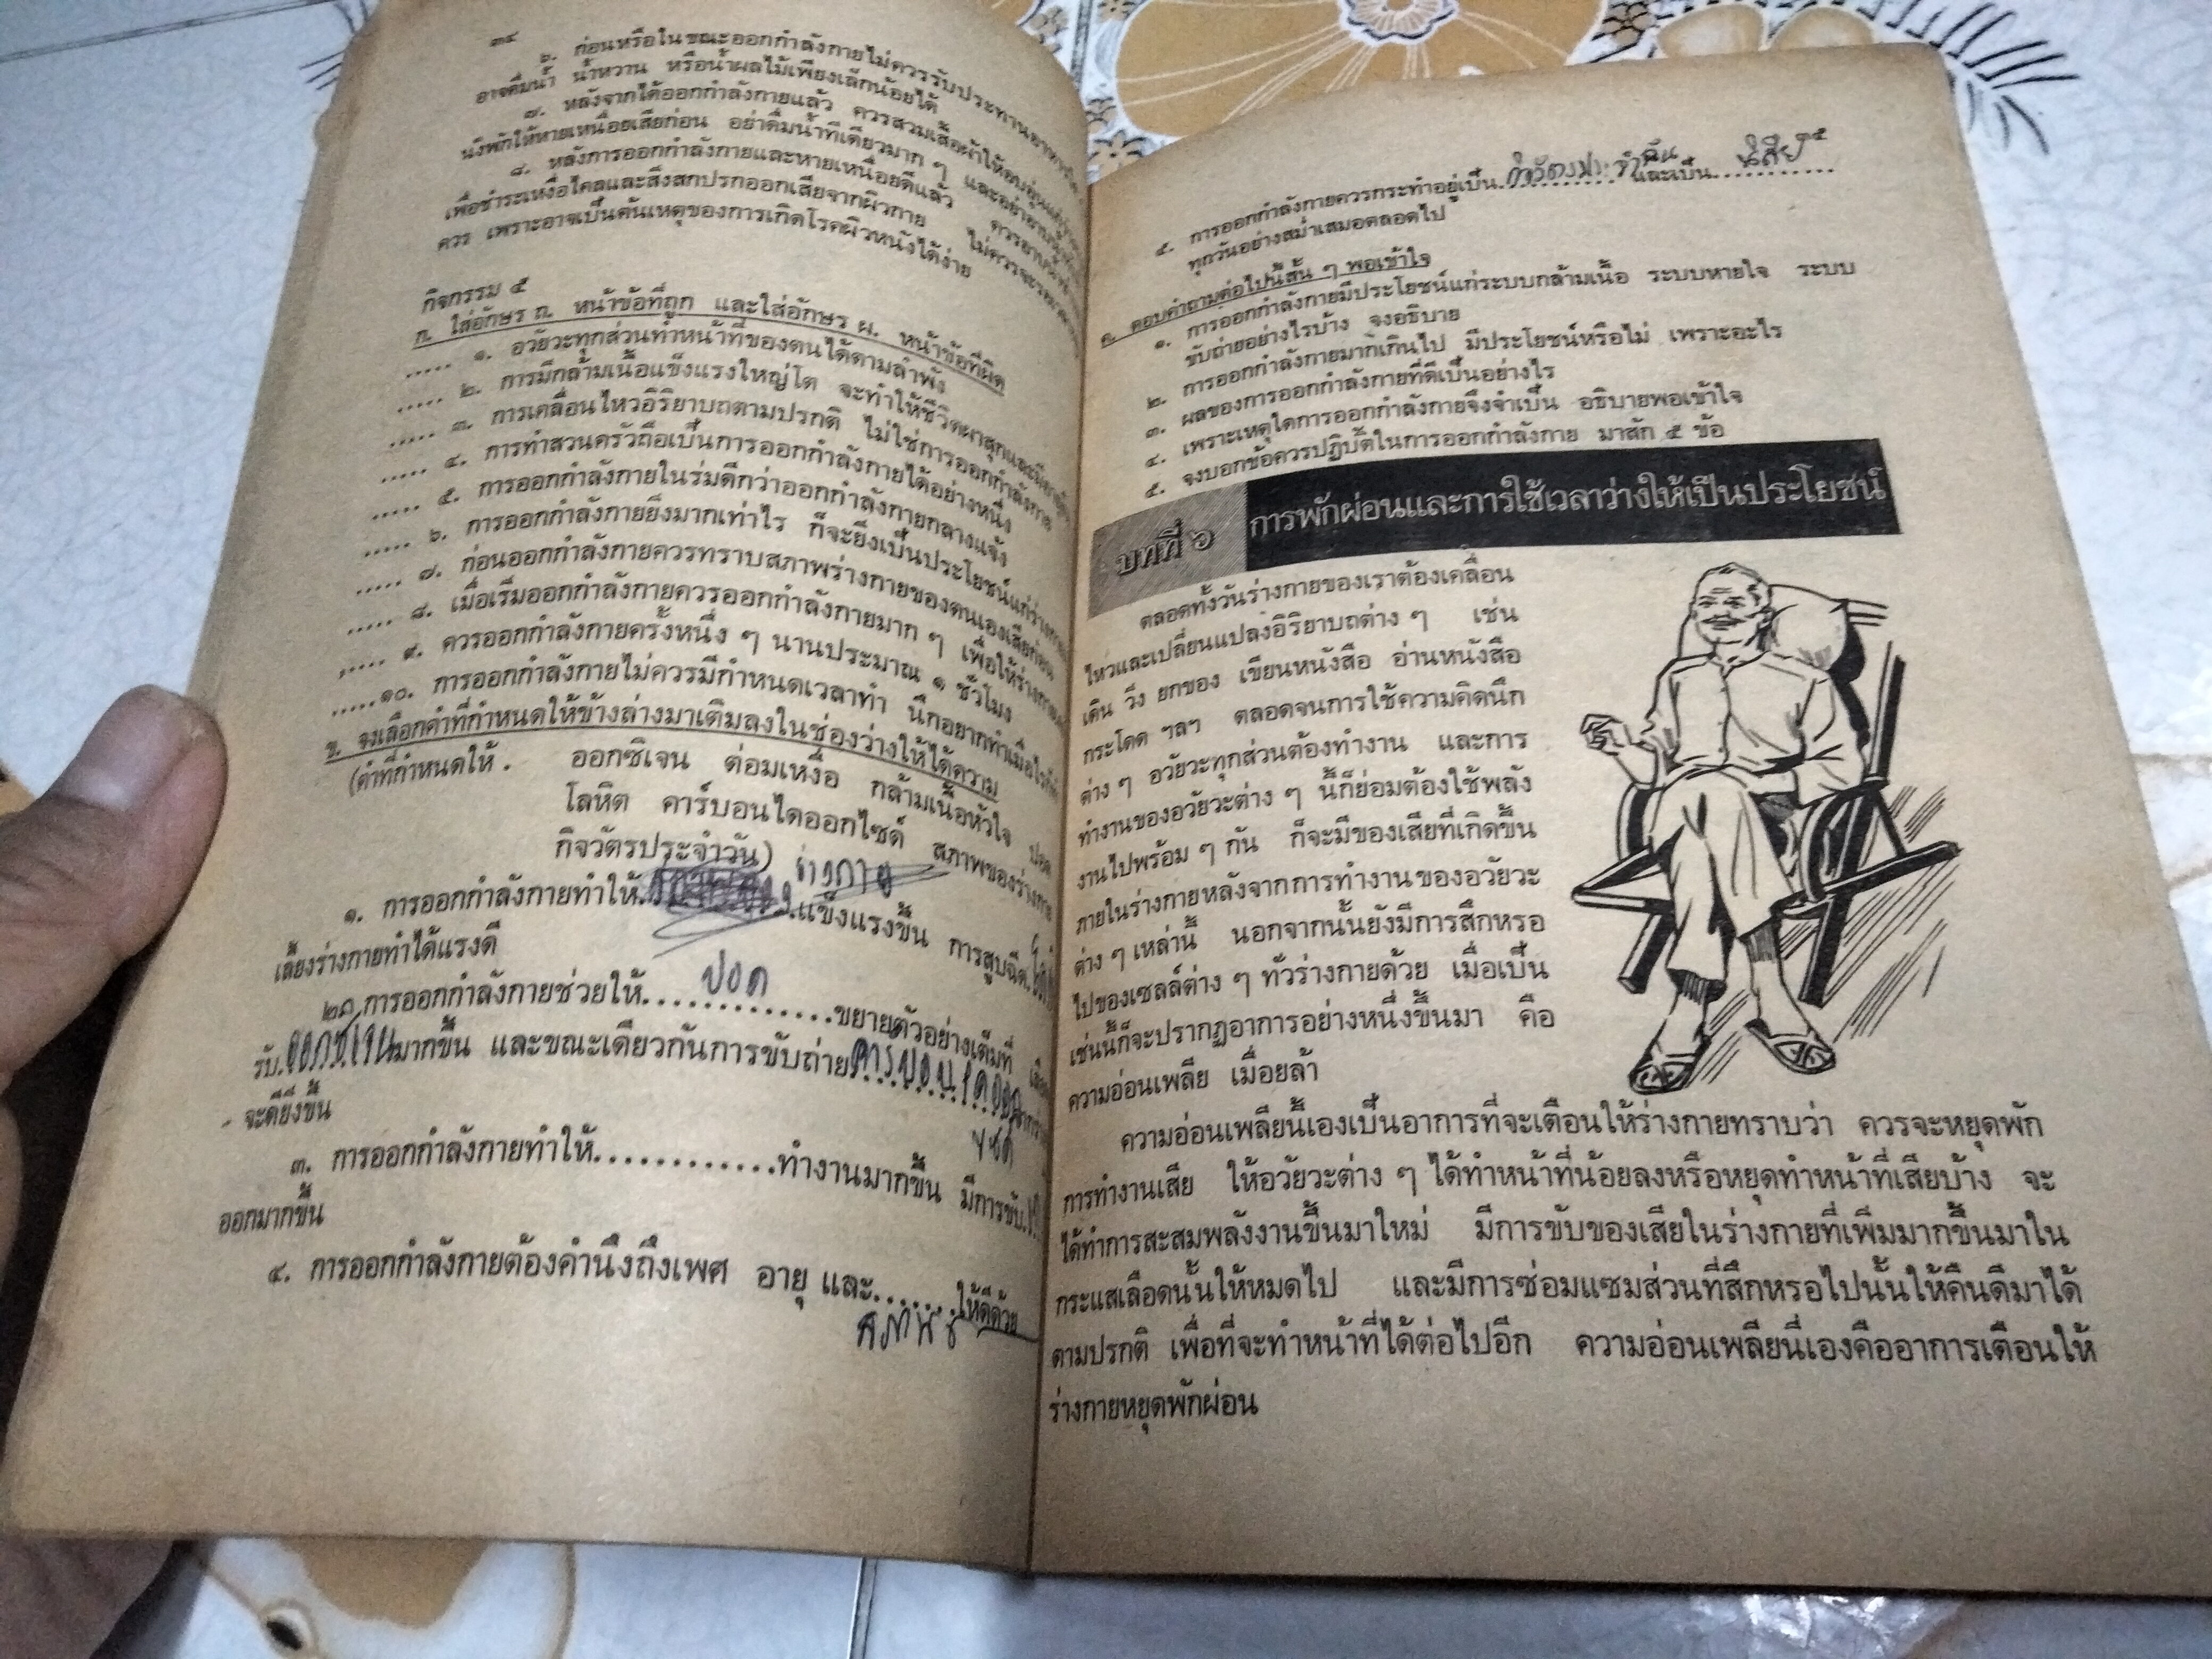 ๓๔
๖. ก่อนหรือในขณะออกกำลังกายไม่ควรรับประทานอาหาร
อาจดื่มน้ำ น้ำหวาน หรือน้ำผลไม้เพียงเล็กน้อยได้
๗. หลังจากได้ออกกำลังกายแล้ว ควรสวมเสื้อผ้าให้อบอุ่น
นั่งพักให้หายเหนื่อยเสียก่อน อย่าดื่มน้ำทีเดียวมาก ๆ และอย่าอาบน้ำ
๘. หลังการออกกำลังกายและหายเหนื่อยดีแล้ว ควรอาบน้ำ
เพื่อชำระเหงื่อไคลและสิ่งสกปรกออกเสียจากผิวกาย ไม่ควรจะ
ควร เพราะอาจเป็นต้นเหตุของการเกิดโรคผิวหนังได้ง่าย
กิจกรรม ๕
ก. ใส่อักษร ถ. หน้าข้อที่ถูก และใส่อักษร ผ. หน้าข้อที่ผิด
..... ๑. อวัยวะทุกส่วนทำหน้าที่ของตนได้ตามลำพัง
..... ๒. การมีกล้ามเนื้อแข็งแรงใหญ่โต จะทำให้ชีวิตผาสุกและ
..... ๓. การเคลื่อนไหวอิริยาบถตามปรกติ ไม่ใช่การออกกำลังกาย
..... ๔. การทำสวนครัวถือเป็นการออกกำลังกายได้อย่างหนึ่ง
..... ๕. การออกกำลังกายในร่มดีกว่าออกกำลังกายกลางแจ้ง
..... ๖. การออกกำลังกายยิ่งมากเท่าไร ก็จะยิ่งเป็นประโยชน์แก่ร่างกาย
..... ๗. ก่อนออกกำลังกายควรทราบสภาพร่างกายของตนเองเสียก่อน
..... ๘. เมื่อเริ่มออกกำลังกายควรออกกำลังกายมาก ๆ เพื่อให้ร่างกาย
..... ๙. ควรออกกำลังกายครั้งหนึ่ง ๆ นานประมาณ ๑ ชั่วโมง
.....๑๐. การออกกำลังกายไม่ควรมีกำหนดเวลาทำ นึกอยากทำเมื่อไร
ข. จงเลือกคำที่กำหนดให้ข้างล่างมาเติมลงในช่องว่างให้ได้ความ
(คำที่กำหนดให้. ออกซิเจน ต่อมเหงื่อ กล้ามเนื้อหัวใจ ปอด
โลหิต คาร์บอนไดออกไซด์ สภาพของร่างกาย
กิจวัตรประจำวัน)
๑. การออกกำลังกายทำให้ ร่างกาย แข็งแรงขึ้น การสูบฉีด
เลี้ยงร่างกายทำได้แรงดี
๒. การออกกำลังกายช่วยให้.... ปอด ....ขยายตัวอย่างเต็มที่
รับ ออกซิเจน มากขึ้น และขณะเดียวกันการขับถ่าย คารบอนไดออก
ไซด์
จะดียิ่งขึ้น
๓. การออกกำลังกายทำให้.............ทำงานมากขึ้น มีการขับ
ออกมากขึ้น
๔. การออกกำลังกายต้องคำนึงถึงเพศ อายุ และ.......ให้ดีด้วย
๓๕
๕. การออกกำลังกายควรกระทำอยู่เป็น............และเป็น นิสัย
ทุกวันอย่างสม่ำเสมอตลอดไป
ค. ตอบคำถามต่อไปนี้สั้น ๆ พอเข้าใจ
๑. การออกกำลังกายมีประโยชน์แก่ระบบกล้ามเนื้อ ระบบหายใจ ระบบ
ขับถ่ายอย่างไรบ้าง จงอธิบาย
๒. การออกกำลังกายมากเกินไป มีประโยชน์หรือไม่ เพราะอะไร
๓. ผลของการออกกำลังกายที่ดีเป็นอย่างไร
๔. เพราะเหตุใดการออกกำลังกายจึงจำเป็น อธิบายพอเข้าใจ
๕. จงบอกข้อควรปฏิบัติในการออกกำลังกาย มาสัก ๕ ข้อ
บทที่ ๖ การพักผ่อนและการใช้เวลาว่างให้เป็นประโยชน์
ตลอดทั้งวันร่างกายของเราต้องเคลื่อน
ไหวและเปลี่ยนแปลงอิริยาบถต่าง ๆ เช่น
เดิน วิ่ง ยกของ เขียนหนังสือ อ่านหนังสือ
กระโดด ฯลฯ ตลอดจนการใช้ความคิดนึก
ต่าง ๆ อวัยวะทุกส่วนต้องทำงาน และการ
ทำงานของอวัยวะต่าง ๆ นี้ก็ย่อมต้องใช้พลัง
งานไปพร้อม ๆ กัน ก็จะมีของเสียที่เกิดขึ้น
ภายในร่างกายหลังจากการทำงานของอวัยวะ
ต่าง ๆ เหล่านี้ นอกจากนั้นยังมีการสึกหรอ
ไปของเซลล์ต่าง ๆ ทั่วร่างกายด้วย เมื่อเป็น
เช่นนี้ก็จะปรากฏอาการอย่างหนึ่งขึ้นมา คือ
ความอ่อนเพลีย เมื่อยล้า
ความอ่อนเพลียนี้เองเป็นอาการที่จะเตือนให้ร่างกายทราบว่า ควรจะหยุดพัก
การทำงานเสีย ให้อวัยวะต่าง ๆ ได้ทำหน้าที่น้อยลงหรือหยุดทำหน้าที่เสียบ้าง จะ
ได้ทำการสะสมพลังงานขึ้นมาใหม่ มีการขับของเสียในร่างกายที่เพิ่มมากขึ้นมาใน
กระแสเลือดนั้นให้หมดไป และมีการซ่อมแซมส่วนที่สึกหรอไปนั้นให้คืนดีมาได้
ตามปรกติ เพื่อที่จะทำหน้าที่ได้ต่อไปอีก ความอ่อนเพลียนี่เองคืออาการเตือนให้
ร่างกายหยุดพักผ่อน